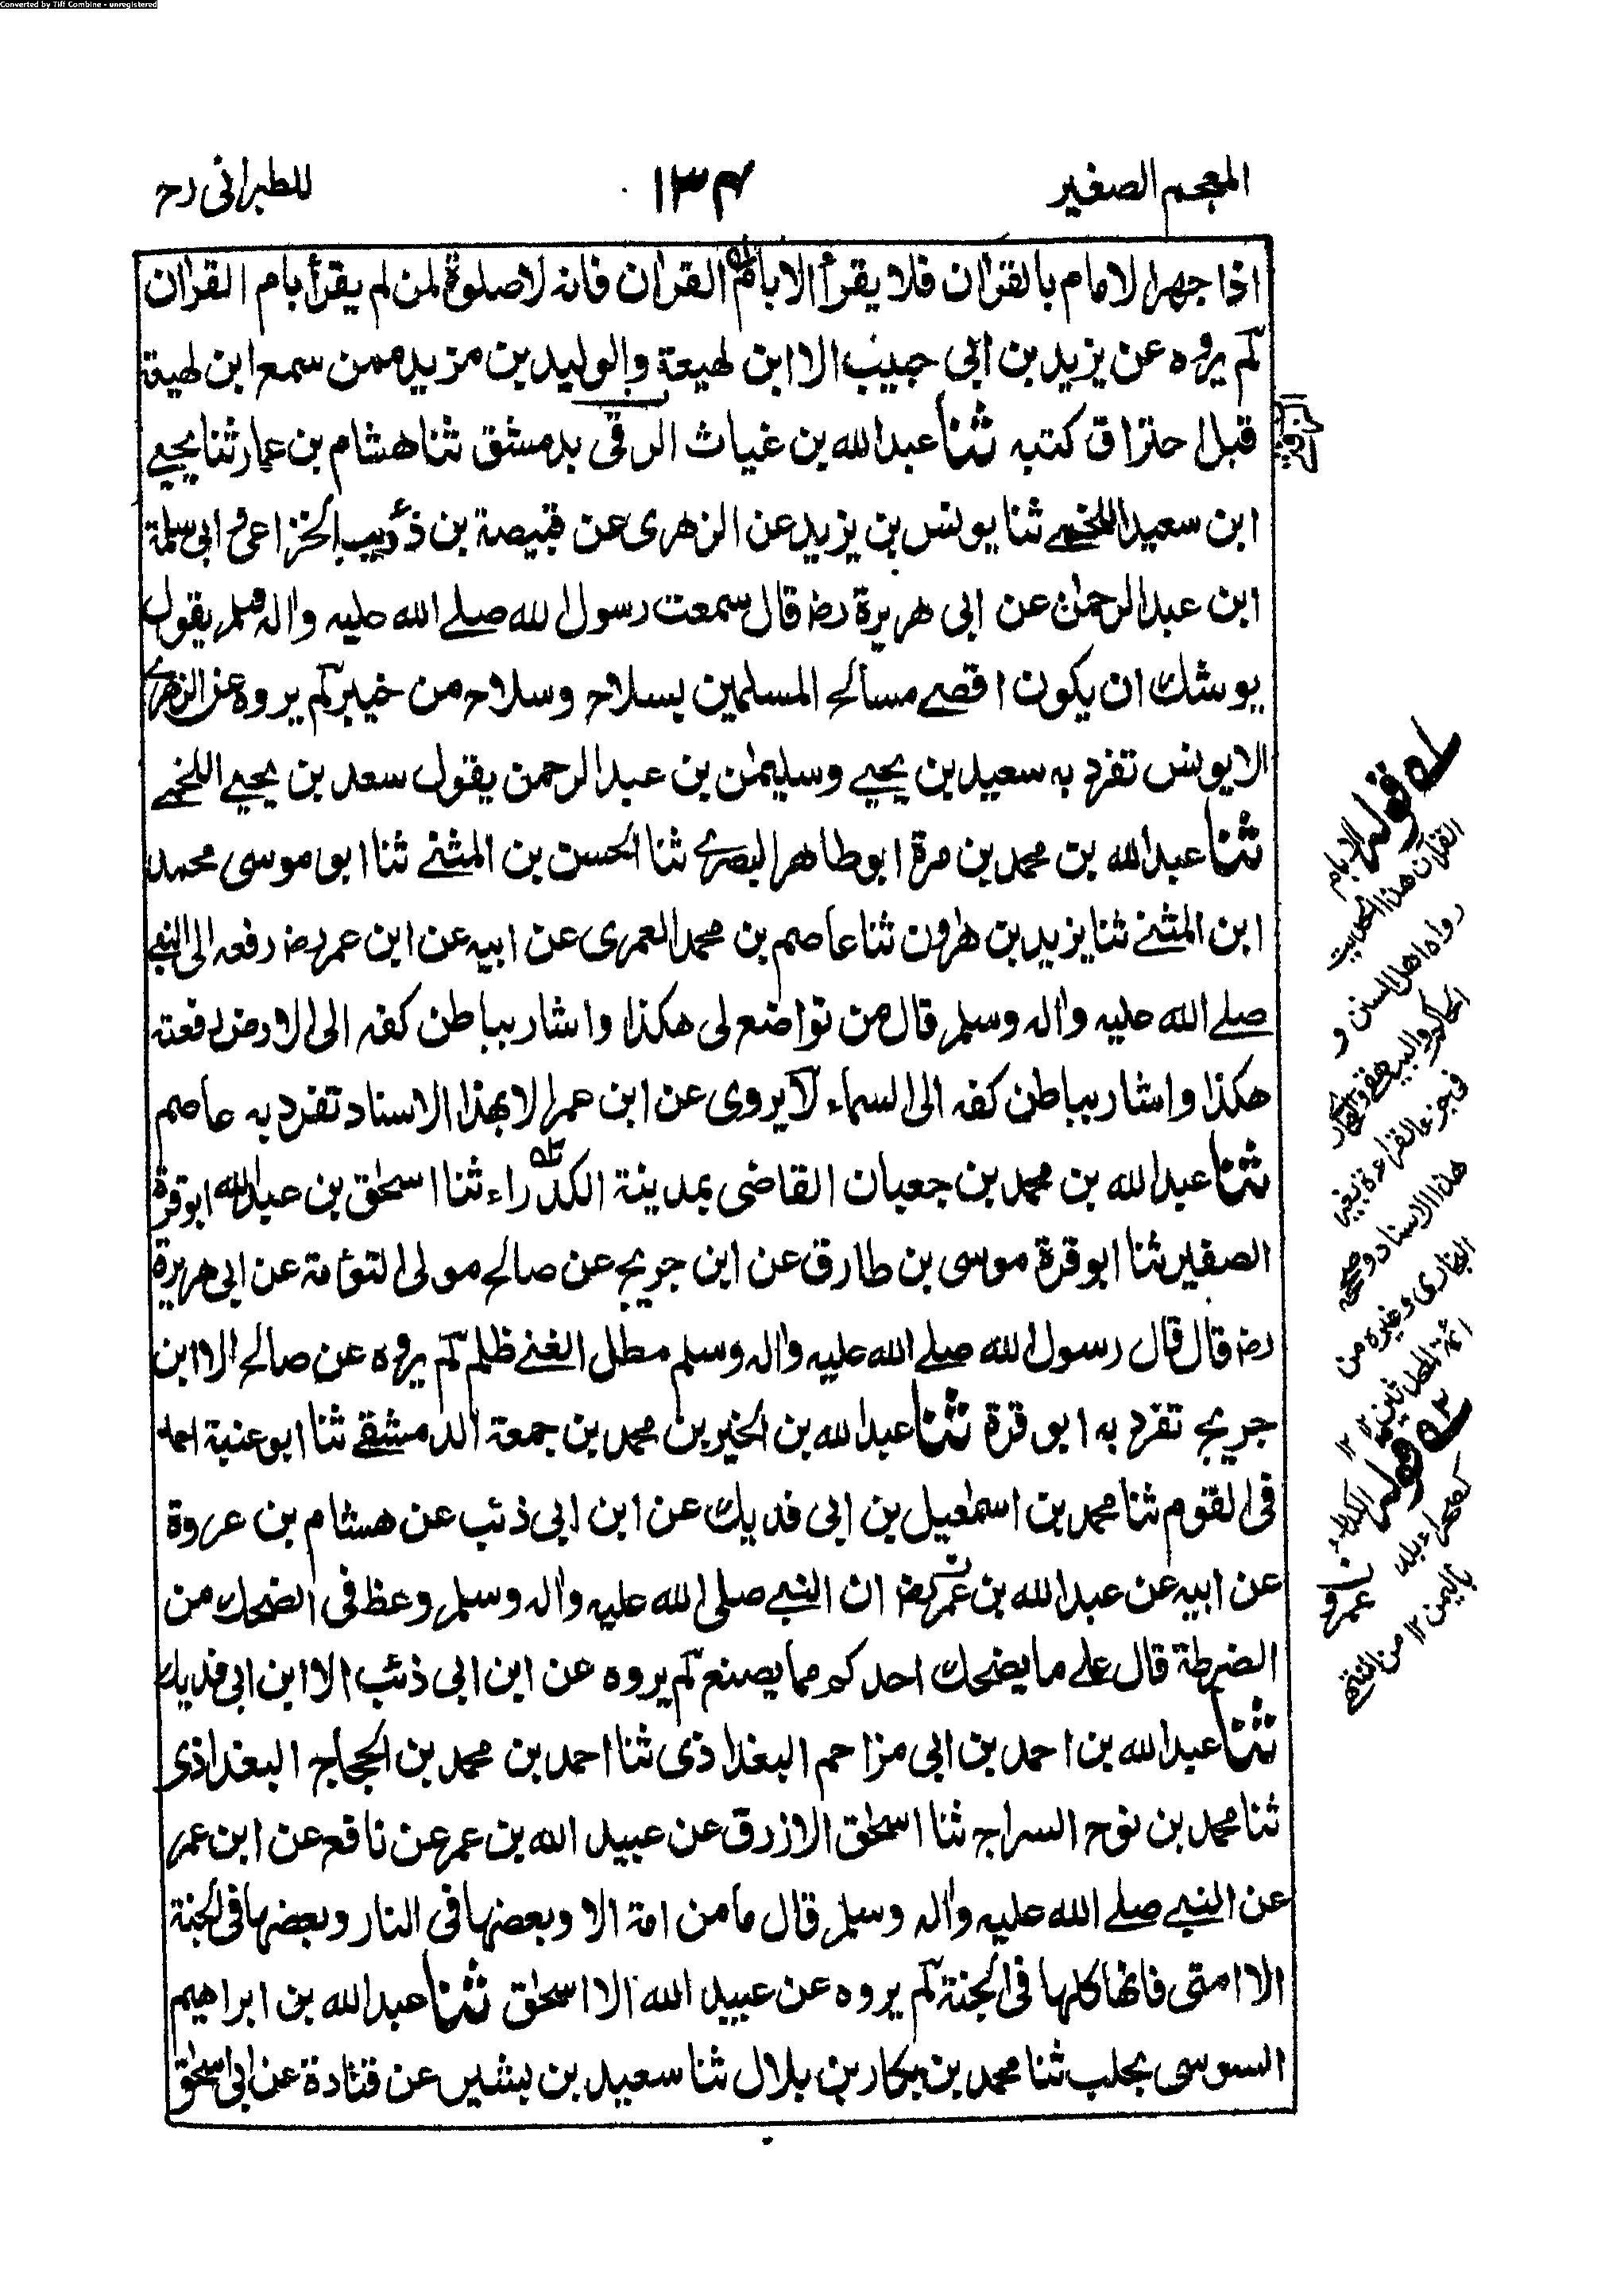 Converted by Tiff Combine - unregistered
المعجم الصغير
۱۳۴
للطبرانی رح
اذا جهر الامام بالقران فلا يقرأ الا بام القران فانه لا صلوة لمن لم يقرأ بام القران
لم يروه عن يزيد بن ابی حبيب الا ابن لهيعة والوليد بن مزيد ممن سمع ابن لهيعة
قبل احتراق كتبه ثنا عبد الله بن غياث الرقی بدمشق ثنا هشام بن عمار ثنا يحيے
ابن سعيد اللخمے ثنا يونس بن يزيد عن الزهری عن قبيصة بن ذؤيب الخزاعی و ابی سلمة
ابن عبد الرحمٰن عن ابی هريرة رض قال سمعت رسول الله صلے الله عليه واٰله وسلم يقول
يوشك ان يكون اقصے مسالح المسلمين بسلاح وسلاح من خيبر لم يروه عن الزهرے
الا يونس تفرد به سعيد بن يحيے وسليمٰن بن عبد الرحمن يقول سعد بن يحيے اللخمے
ثنا عبد الله بن محمد بن مرة ابو طاهر البصرے ثنا الحسن بن المثنے ثنا ابو موسی محمد
ابن المثنے ثنا يزيد بن هٰرون ثنا عاصم بن محمد العمری عن ابيه عن ابن عمر رض رفعه الی النبے
صلے الله عليه واٰله وسلم قال من تواضع لی هكذا واشار بباطن كفه الی الارض رفعته
هكذا واشار بباطن كفه الی السماء لا يروی عن ابن عمر الا بهذا الاسناد تفرد به عاصم
ثنا عبد الله بن محمد بن جعبان القاضی بمدينة الكدراء ثنا اسحٰق بن عبد الله ابو قرة
الصغير ثنا ابو قرة موسی بن طارق عن ابن جريج عن صالح مولی التوءمة عن ابی هريرة
رض قال قال رسول الله صلے الله عليه واٰله وسلم مطل الغنے ظلم لم يروه عن صالح الا ابن
جريج تفرد به ابو قرة ثنا عبد الله بن الخير بن محمد بن جمعة الدمشقے ثنا ابو عنبة احد
فی القوم ثنا محمد بن اسمٰعيل بن ابی فديك عن ابن ابی ذئب عن هشام بن عروة
عن ابيه عن عبد الله بن عمر رض ان النبے صلی الله عليه واٰله وسلم وعظ فی الضحك من
الضرطة قال علے ما يضحك احدكم مما يصنع لم يروه عن ابن ابی ذئب الا ابن ابی فديك
ثنا عبد الله بن احمد بن ابی مزاحم البغداذی ثنا احمد بن محمد بن الحجاج البغداذی
ثنا محمد بن نوح السراج ثنا اسحٰق الازرق عن عبيد الله بن عمر عن نافع عن ابن عمر
عن النبے صلے الله عليه واٰله وسلم قال ما من امة الا وبعضها فی النار وبعضها فی الجنة
الا امتی فانها كلها فی الجنة لم يروه عن عبيد الله الا اسحٰق ثنا عبد الله بن ابراهيم
السوسی بحلب ثنا محمد بن بكار بن بلال ثنا سعيد بن بشير عن قتادة عن ابی اسحٰق
قوله الا بام
القران هذا الحديث
رواه اهل السنن و
الحاكم والبيهقے
هذا الاسناد وصححه
البخاری وغيره من
ائمة المحدثين ۱۲
قوله الكدراء
باليمن ۱۲ من
عمرو